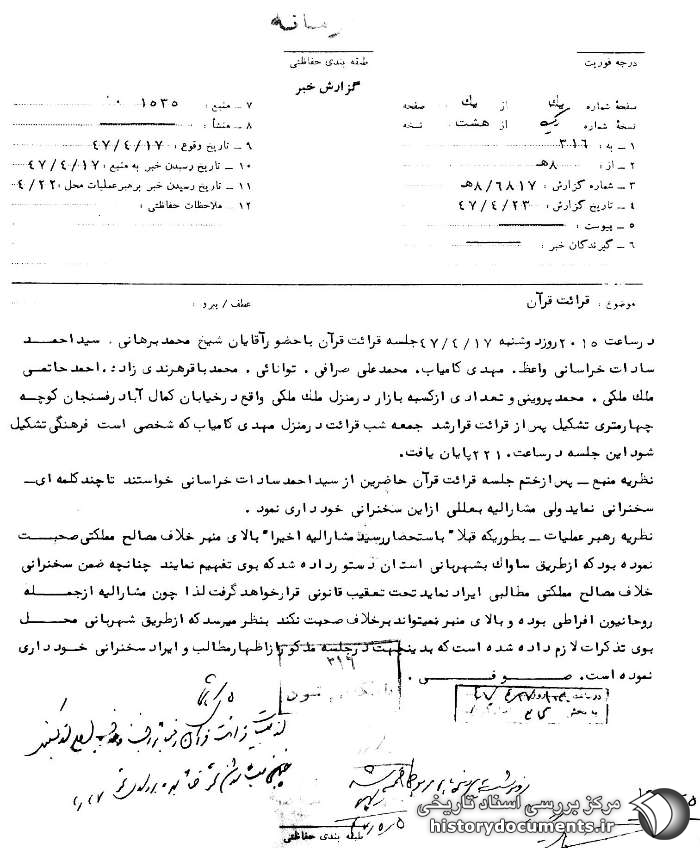 طبقه بندی حفاظتی
درجه فوریت
گزارش خبر
صفحهٔ شماره یک از یک صفحه
نسخهٔ شماره یک از هشت نسخه
۱ ـ به : ۳۱۶
۲ ـ از : ۸هـ
۳ ـ شماره گزارش : ۸/۶۸۱۷هـ
۴ ـ تاریخ گزارش : ۴۷/۴/۲۳
۵ ـ پیوست :
۶ ـ گیرندگان خبر :
۷ ـ منبع : ۱۵۳۵
۸ ـ منشأ :
۹ ـ تاریخ وقوع : ۴۷/۴/۱۷
۱۰ ـ تاریخ رسیدن خبر به منبع : ۴۷/۴/۱۷
۱۱ ـ تاریخ رسیدن خبر برهبرعملیات محل : ۴/۲۲
۱۲ ـ ملاحظات حفاظتی :
موضوع : قرائت قرآن
عطف / پیرو :
درساعت ۲۰۱۵ روزدوشنبه ۴۷/۴/۱۷ جلسه قرائت قرآن باحضورآقایان شیخ محمدبرهانی . سیداحمد
سادات خراسانی واعظ. مهدی کامیاب. محمدعلی صرافی . توانائی . محمدباقرهرندی زاده. احمدحاتمی
ملك ملکی . محمدپروینی و تعدادی ازکسبه بازار درمنزل ملك ملکی واقع درخیابان کمال آباد رفسنجان کوچه
چهارمتری تشکیل پس از قرائت قرارشد جمعه شب قرائت درمنزل مهدی کامیاب که شخصی است فرهنگی تشکیل
شود این جلسه درساعت ۲۲۱۰ پایان یافت.
نظریه منبع ـ پس ازختم جلسه قرائت قرآن حاضرین از سیداحمدسادات خراسانی خواستند تاچندکلمه ای ـ
سخنرانی نماید ولی مشارالیه بعللی ازاین سخنرانی خودداری نمود .
نظریه رهبرعملیات ـ بطوریکه قبلاً باستحضاررسید مشارالیه اخیراً بالای منبر خلاف مصالح مملکتی صحبت
نموده بود که ازطریق ساواك بشهربانی استان دستورداده شد که بوی تفهیم نمایند چنانچه ضمن سخنرانی
خلاف مصالح مملکتی مطالبی ایراد نماید تحت تعقیب قانونی قرارخواهدگرفت لذا چون مشارالیه ازجمله
روحانیون افراطی بوده و بالای منبر نمیتواند برخلاف صحبت نکند بنظر میرسد که ازطریق شهربانی محل
بوی تذکرات لازم داده شده است که بدینجهت درجلسه مذکور ازاظهارمطالب و ایراد سخنرانی خودداری
نموده است. صوفی .
۳۱۶
طبقه بندی حفاظتی
مرکز بررسی اسناد تاریخی
historydocuments.ir